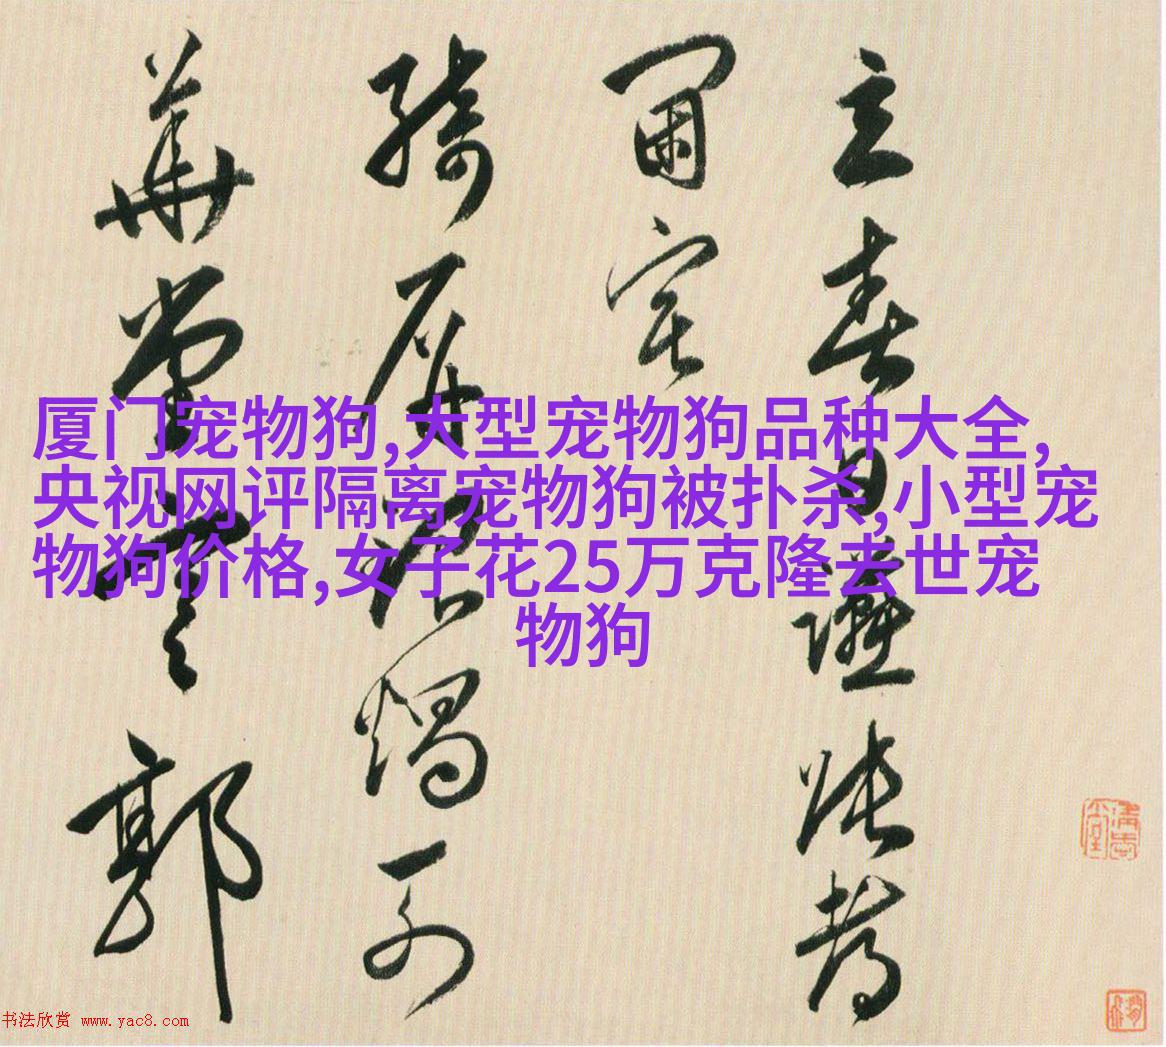 厦门宠物狗,大型宠物狗品种大全,
央视网评隔离宠物狗被扑杀,小型宠
物狗价格,女子花25万克隆去世宠
物狗
立春日讌張
宅
綺屏燭列
華堂郭
书法欣赏 www.yac8.com